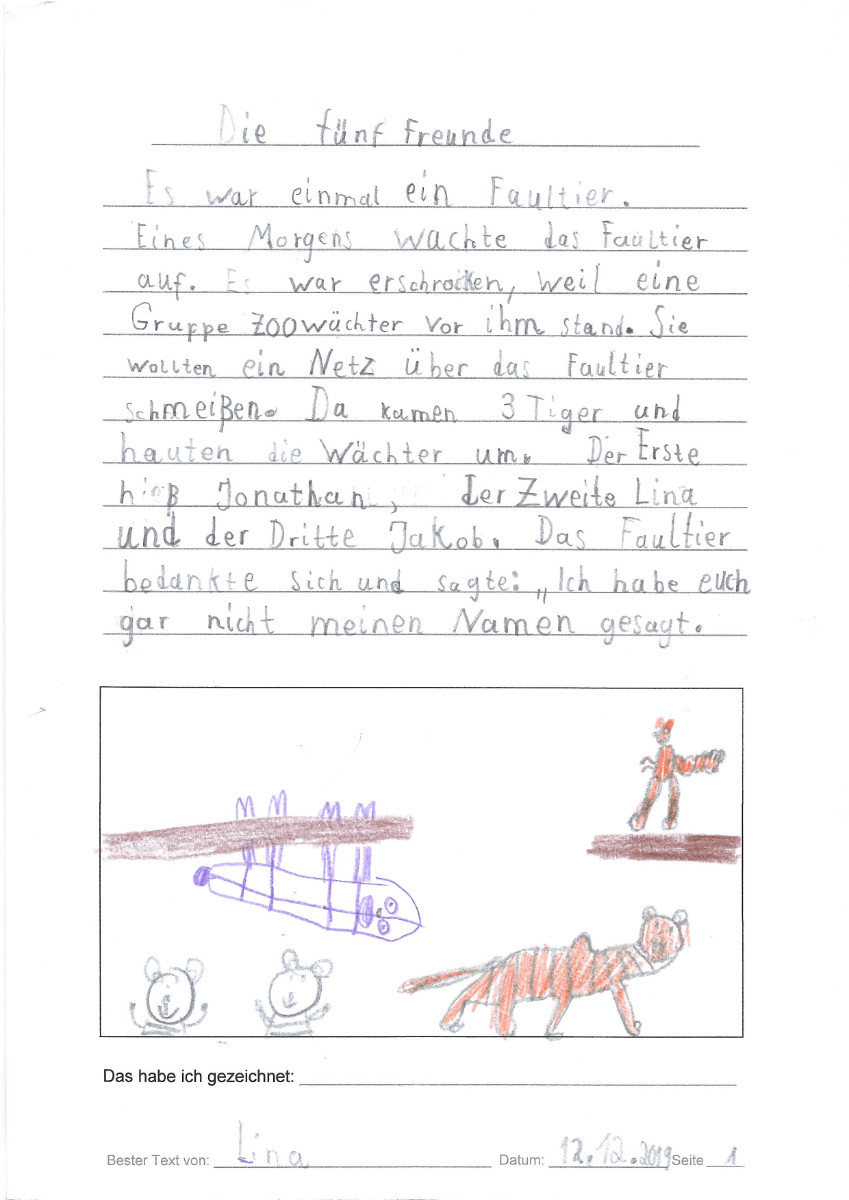 Die fünf Freunde
Es war einmal ein Faultier.
Eines Morgens wachte das Faultier
auf. Es war erschrocken, weil eine
Gruppe Zoowächter vor ihm stand. Sie
wollten ein Netz über das Faultier
schmeißen. Da kamen 3 Tiger und
hauten die Wächter um. Der Erste
hieß Jonathan, der Zweite Lina
und der Dritte Jakob. Das Faultier
bedankte sich und sagte: „Ich habe euch
gar nicht meinen Namen gesagt.
Das habe ich gezeichnet:
Bester Text von: Lina Datum: 12.12.2019 Seite 1